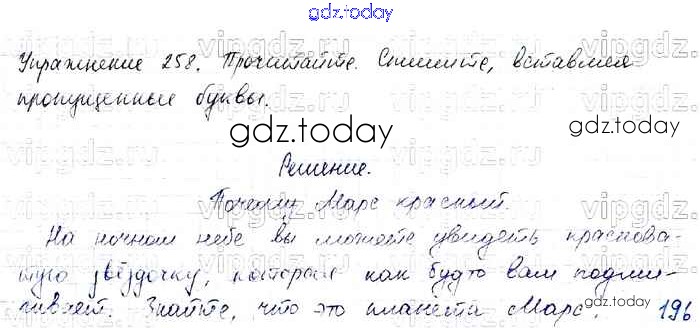 gdz.today
Упражнение 258. Прочитайте. Спишите, вставляя
пропущенные буквы.
gdz.today
gdz.today
Решение.
Почему Марс красный.
На ночном небе вы можете увидеть краснова-
тую звёздочку, которая как будто вам подми-
гивает. Знайте, что это планета Марс.
gdz.today
196
vipgdz.ru